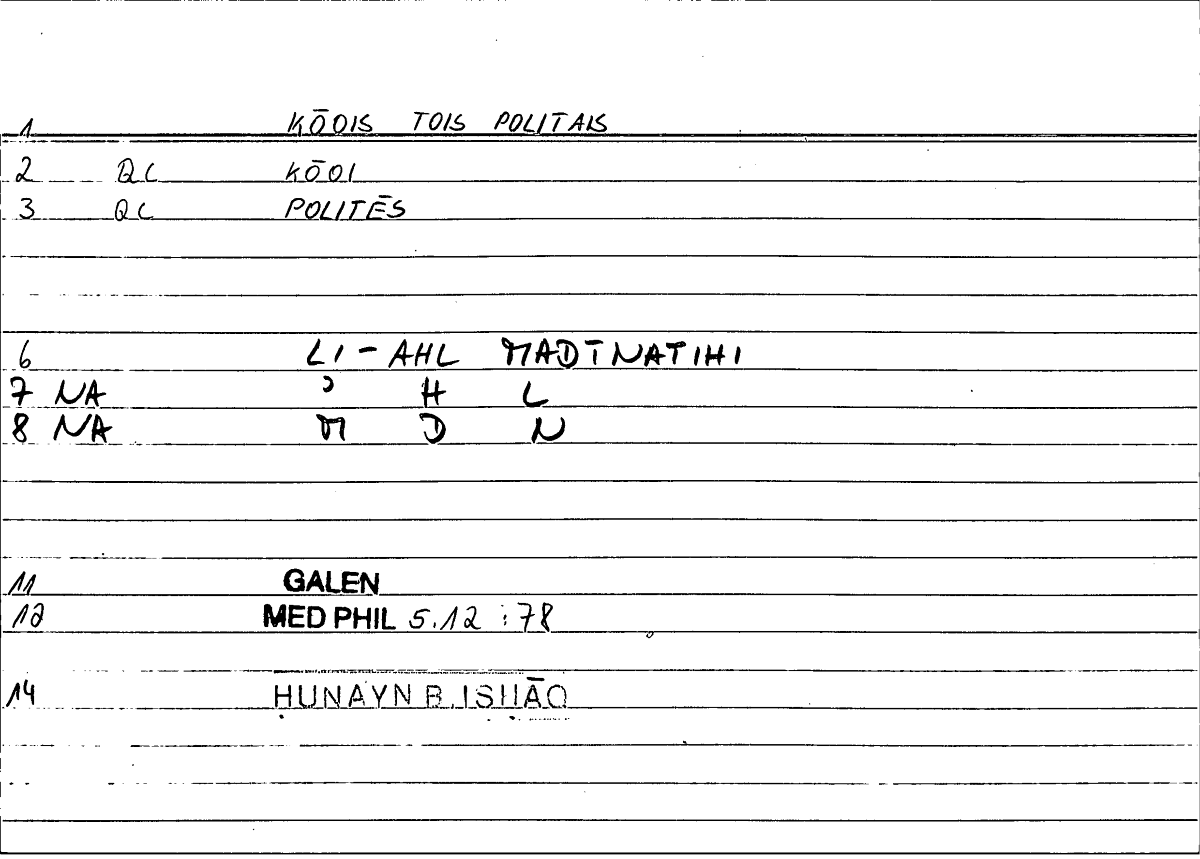 1 KŌOIS TOIS POLITAIS
2 QC KŌOI
3 QC POLITĒS
6 LI-AHL MADĪNATIHI
7 NA ʾ H L
8 NA M D N
11 GALEN
12 MED PHIL 5.12 :78
14 ḤUNAYN B. ISḤĀQ